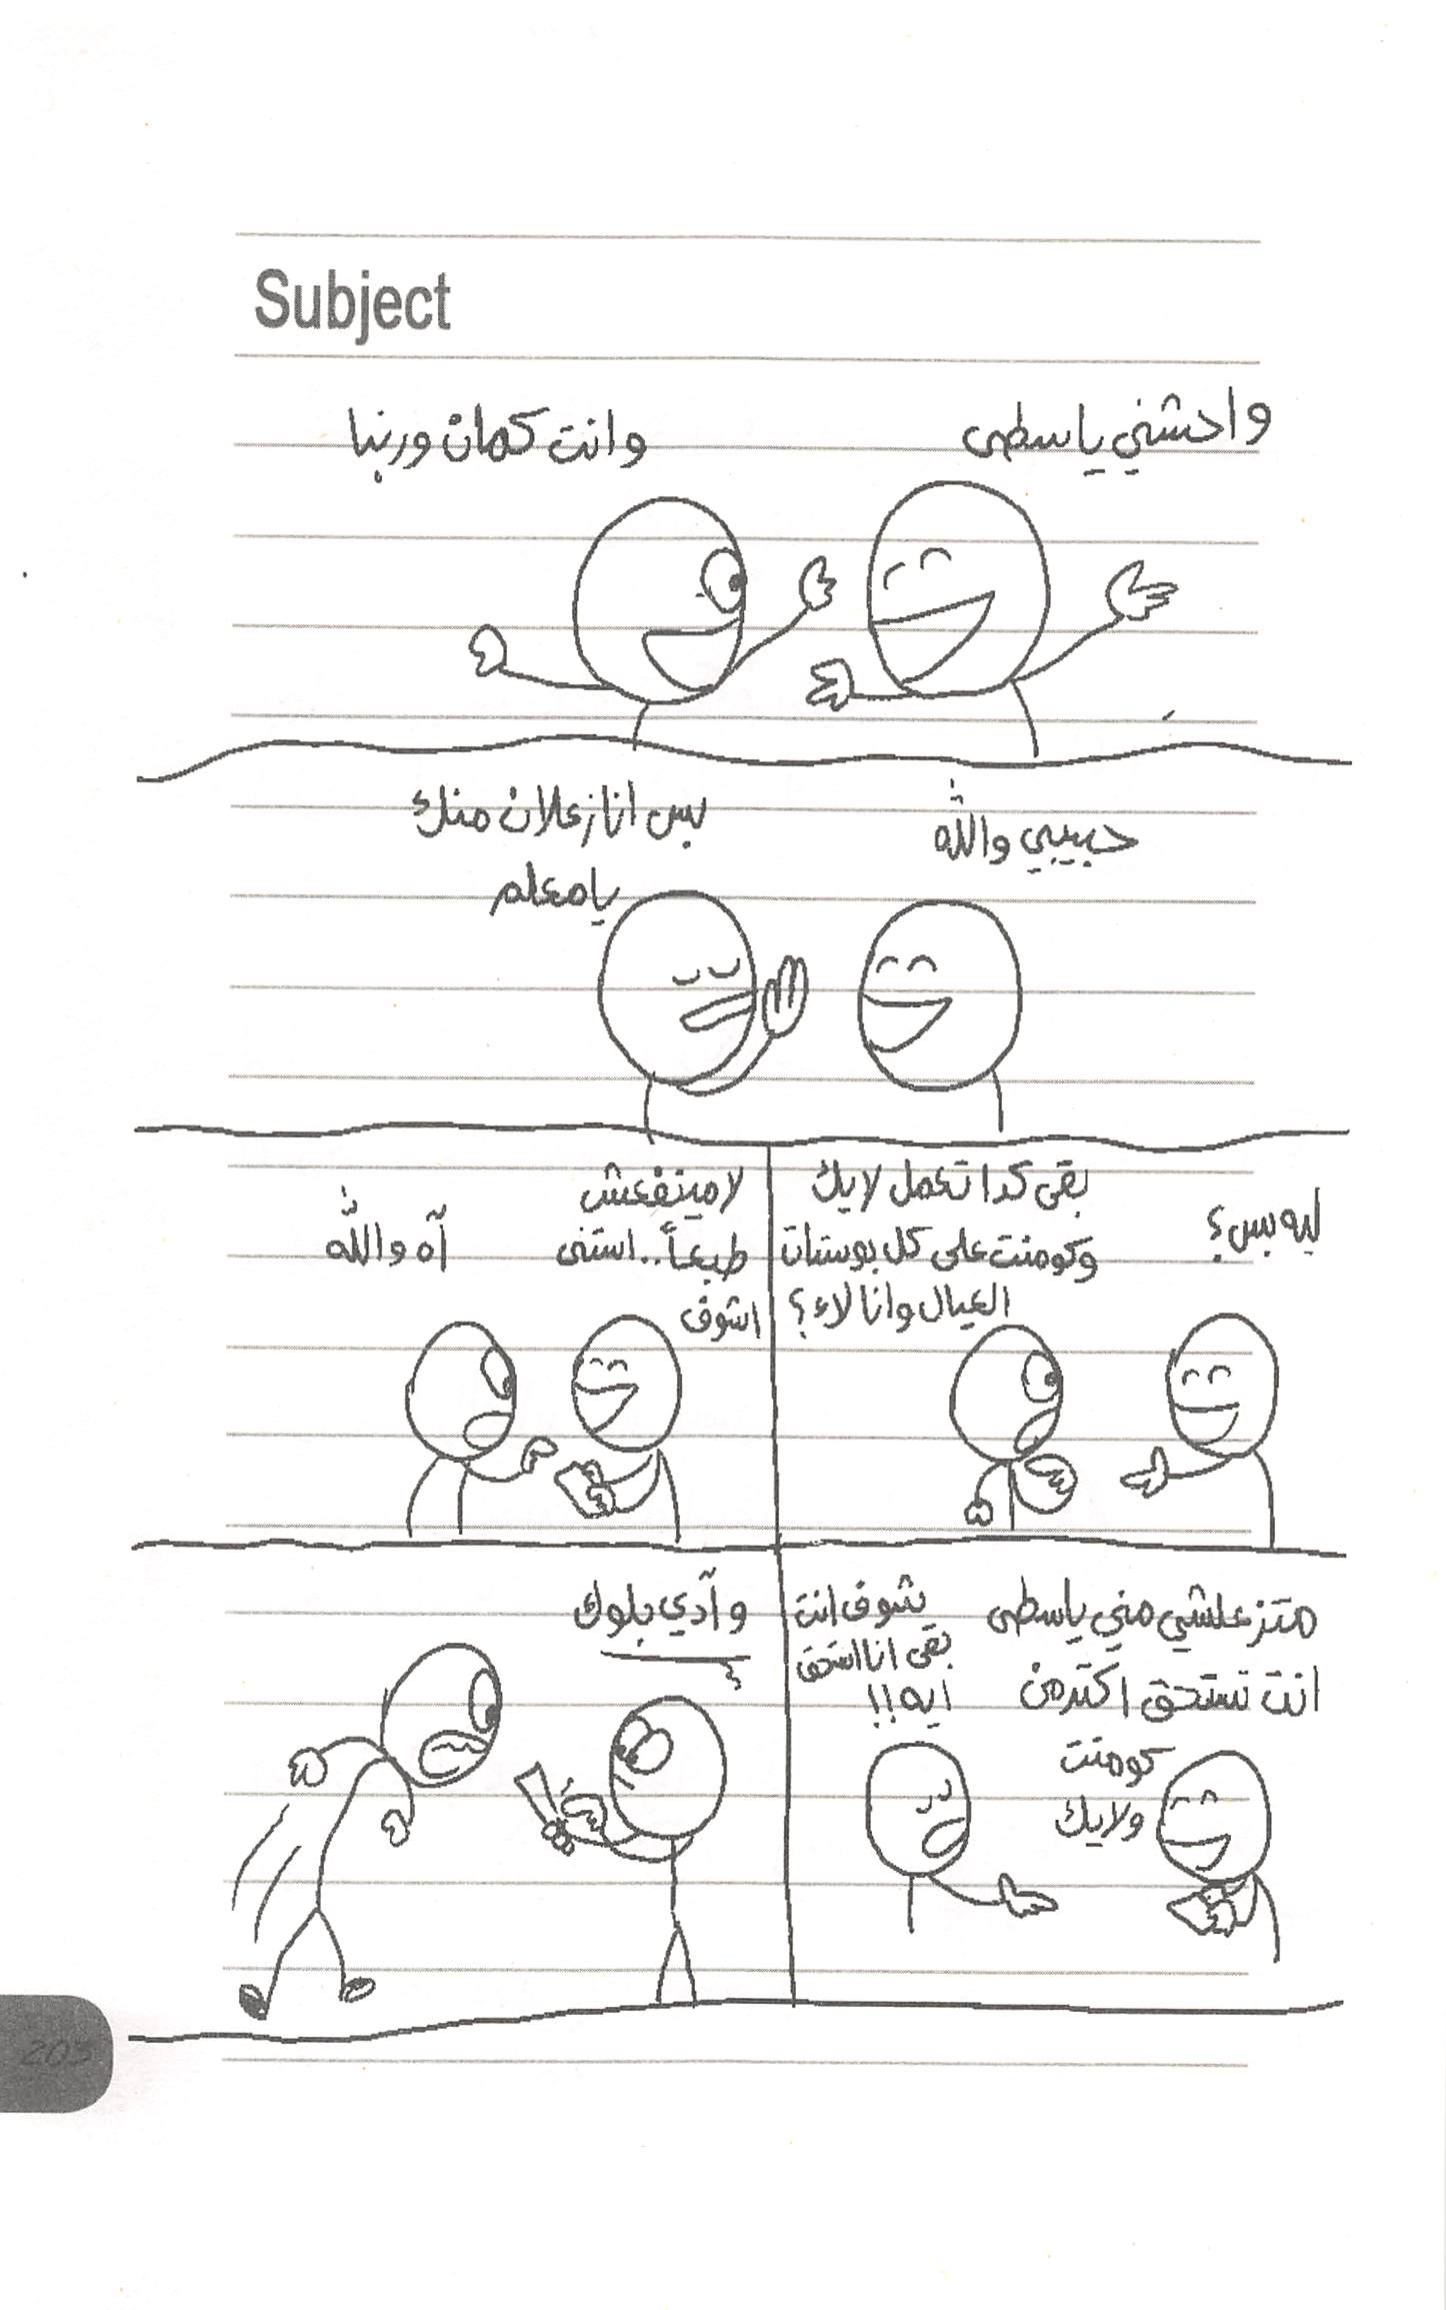 Subject
واحشني ياسطى
وانت كمان وربنا
حبيبي والله
بس انا زعلان منك
يامعلم
ليه بس؟
بقى كدا تعمل لايك
وكومنت على كل بوستات
العيال وانا لاء؟
لا مينفعش
طبعاً.. استنى
اشوف
آه والله
متزعلشي مني ياسطى
انت تستحق اكتر من
كومنت
ولايك
شوف انت
بقى انا استحق
ايه!!
وآدي بلوك
203